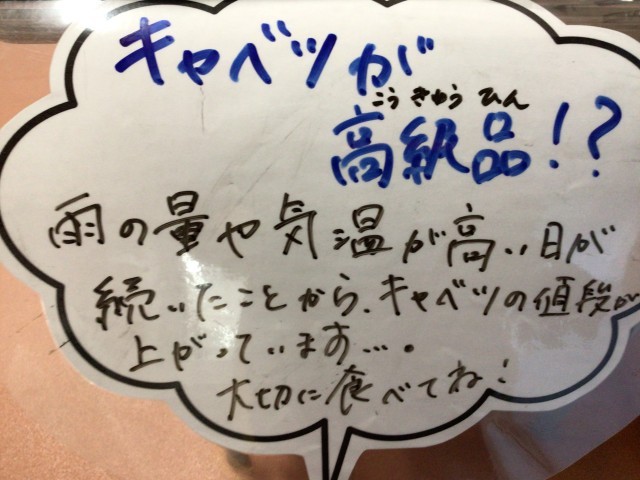 キャベツが
こうきゅうひん
高級品!?
雨の量や気温が高い日が
続いたことから、キャベツの値段が
上がっています…。
大切に食べてね!